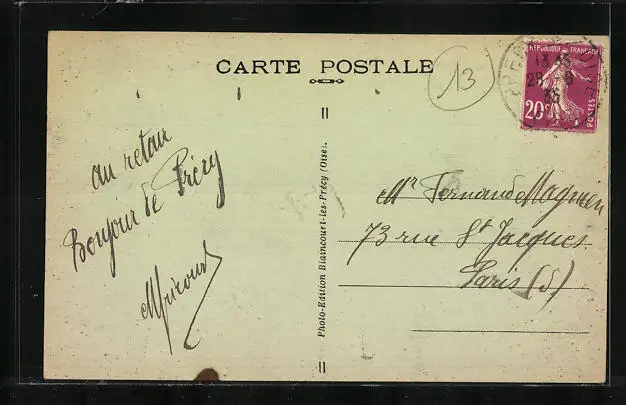 CARTE POSTALE
13
RÉPUBLIQUE FRANÇAISE
20c
POSTES
au retour
Bonjour de Précy
Photo-Edition Blaincourt-les-Précy (Oise).
Mr Fernand Magnien
73 rue St Jacques
Paris (5)